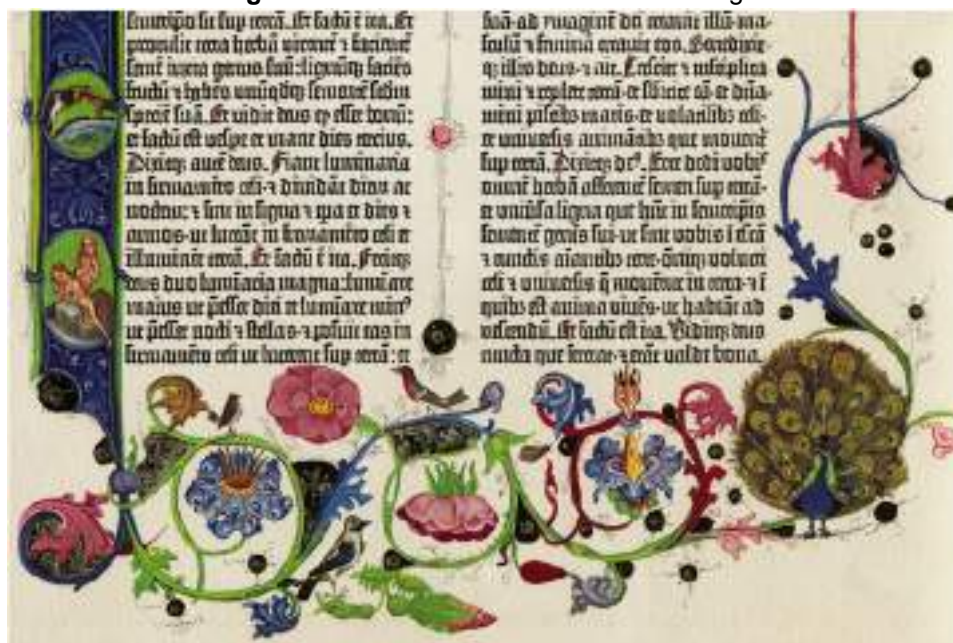 semetipso sit sup terrā. Et factū ē ita. Et
protulit terra herbā virentē ⁊ facientē
semē iuxta genus suū: lignūq; faciēs
fructū ⁊ habēs unūqdq; sementē scdm
speciē suā. Et vidit deus ꝙ esset bonū:
et factū est vespe et mane dies tercius.
Dixitq; autē deus. Fiant luminaria
in firmamēto celi · ⁊ dividāt diem ac
noctem: ⁊ sint in signa ⁊ tpa et dies ⁊
annos · ut luceāt in firmamēto celi et
illuminēt terrā. Et factū ē ita. Fecitq;
deus duo luminaria magna: luminare
maius ut pesset diei et luminare minꝰ
ut pesset nocti ⁊ stellas · ⁊ posuit eas in
firmamēto celi ut lucerent sup terrā: et
suā · ad ymaginē dei creavit illū · ma-
sculū ⁊ feminā creavit eos. Benedixit-
q; illis deus · ⁊ ait. Crescite ⁊ multiplica-
mini ⁊ replete terrā · et subicite eā · et dña-
mini piscibꝫ maris · et volatilibꝫ celi ·
et universis animātibꝫ que moventᷣ
sup terrā. Dixitq; dꝰ. Ecce dedi vobis
omnē herbā afferentē semen sup terrā ·
et univsa ligna que hñt in semetipis
sementē genis sui · ut sint vobis ī escā
⁊ cunctis aīantibꝫ terre · omīq; volucri
celi ⁊ universis q moventᷣ in terra · ⁊ ī
quibꝫ est anima vivēs · ut habeāt ad
vescendū. Et factū est ita. Viditq; deus
cuncta que fecerat · ⁊ erāt valde bona.